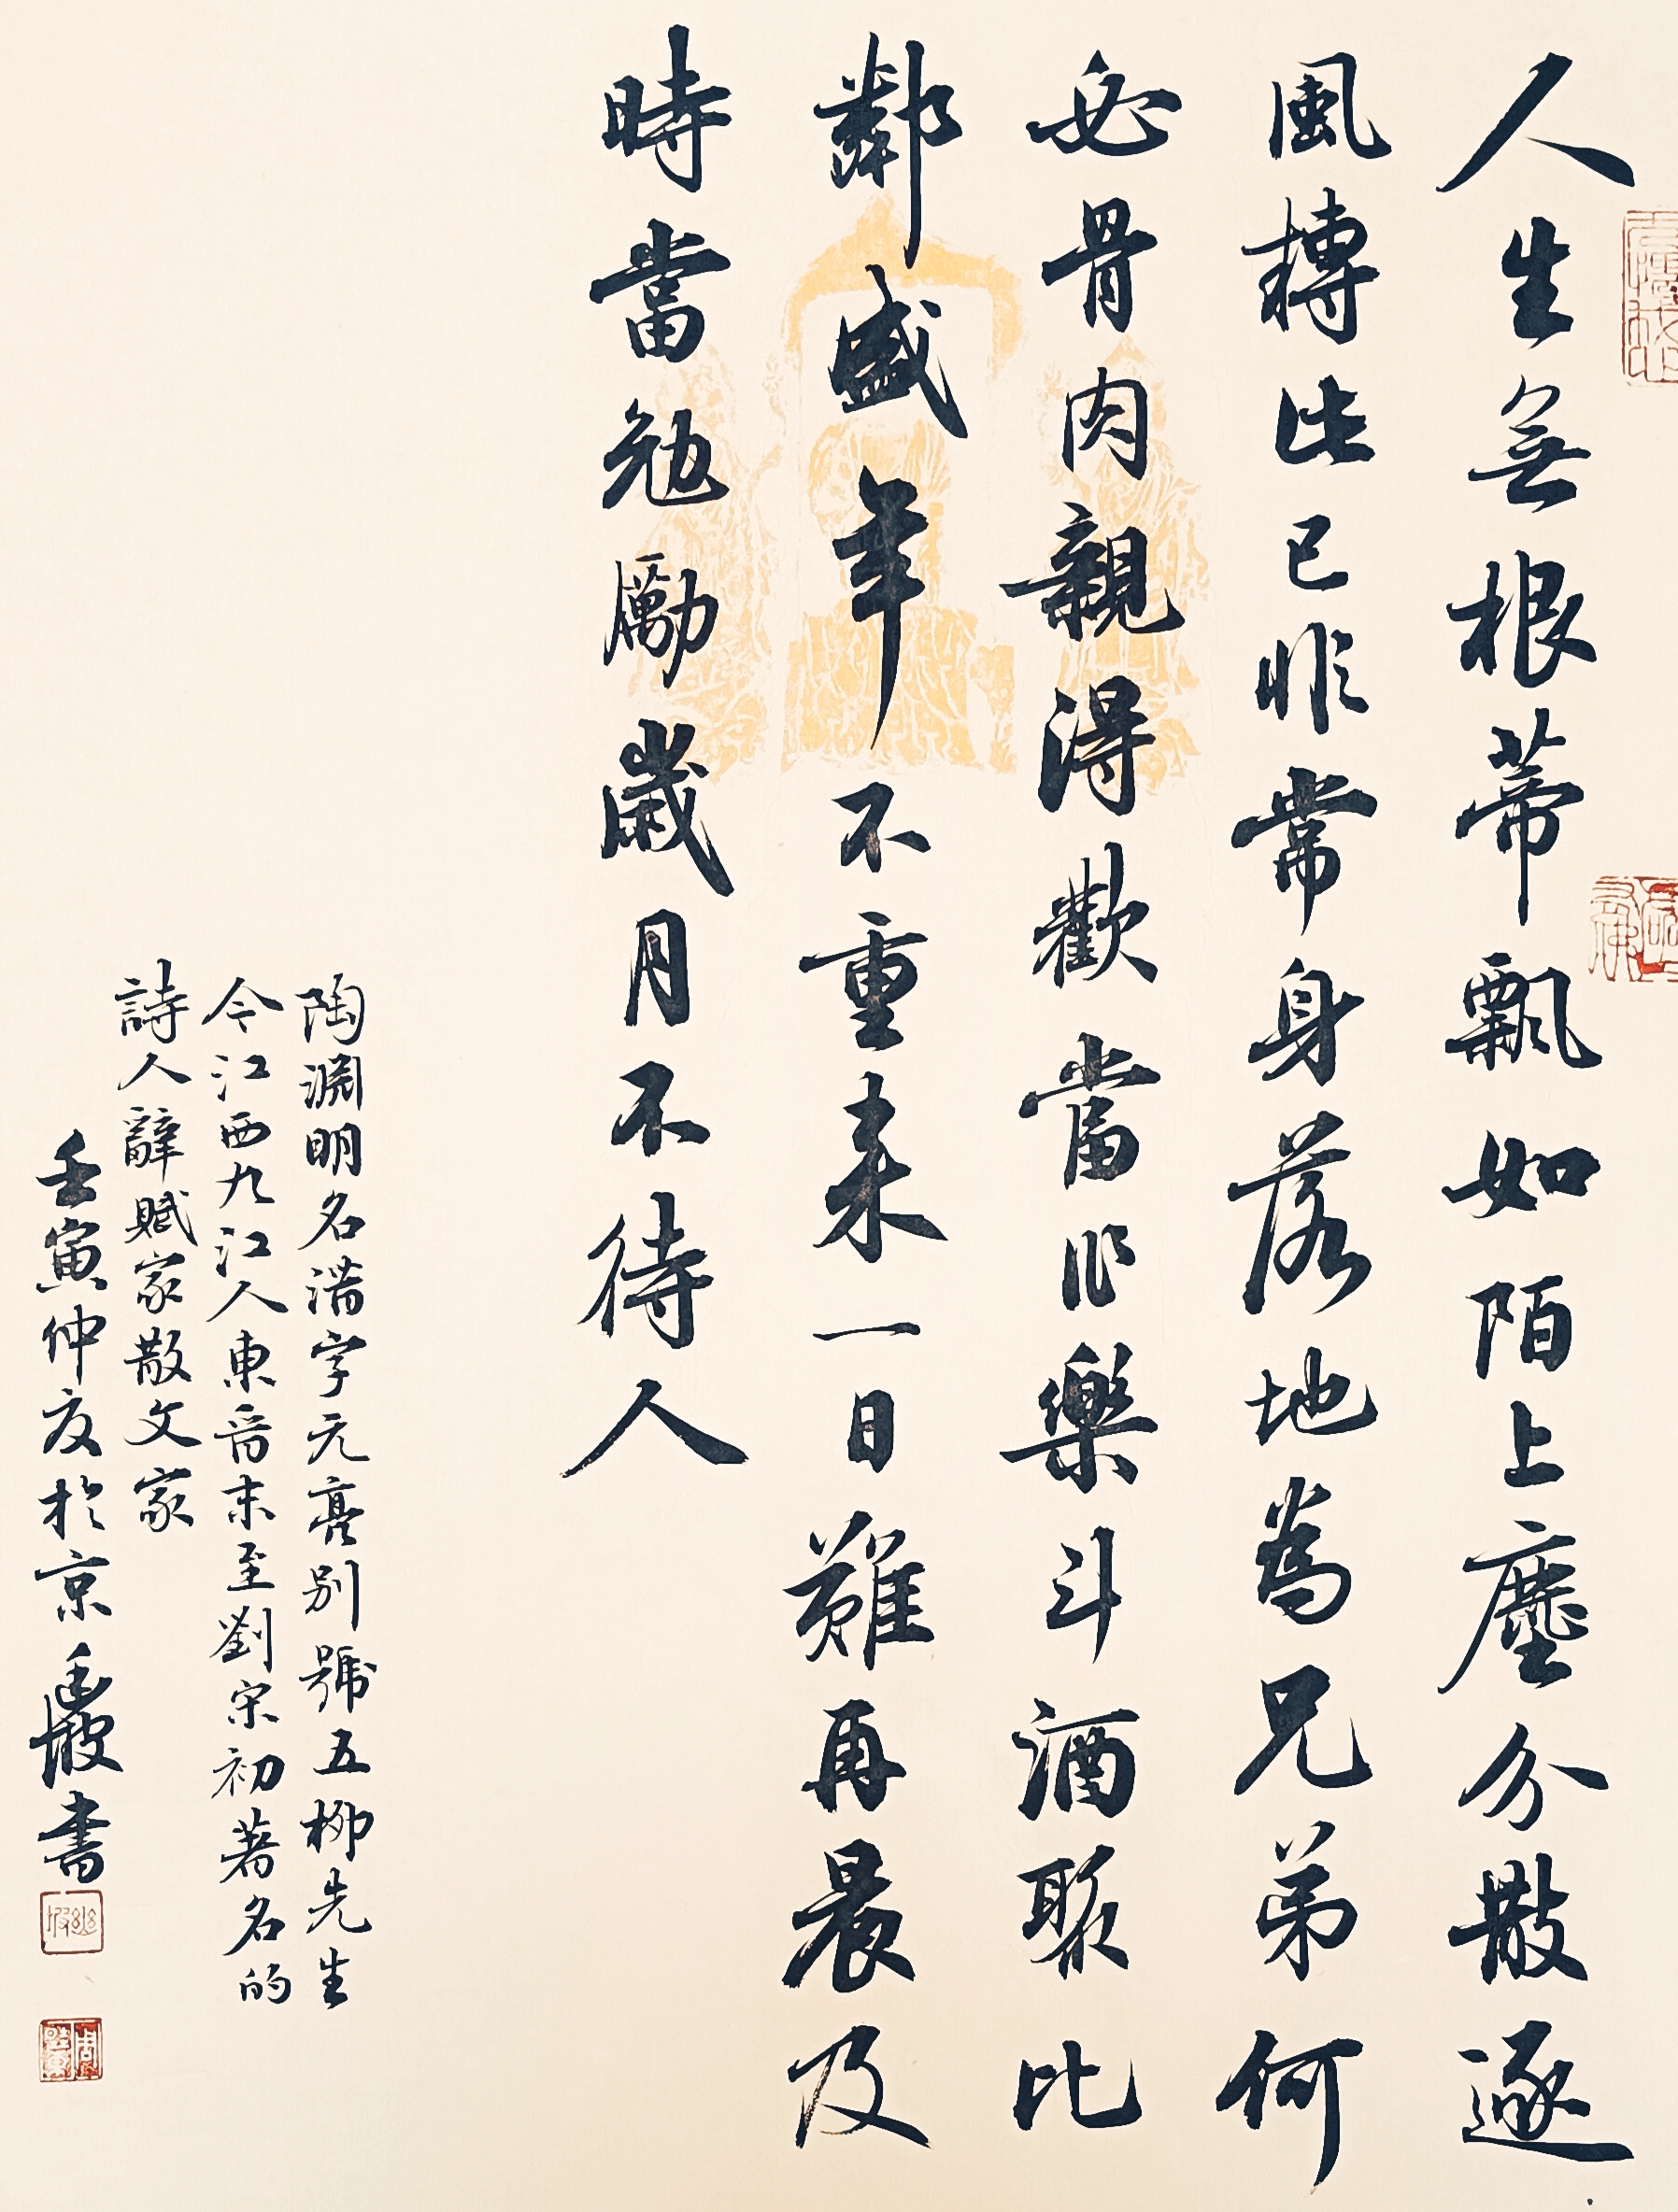 人生無根蒂飄如陌上塵分散逐
風轉此已非常身落地為兄弟何
必骨肉親得歡當作樂斗酒聚比
鄰盛年不重来一日難再晨及
時當勉勵歲月不待人
陶淵明名潛字元亮别號五柳先生
今江西九江人東晉末至劉宋初著名的
詩人辭賦家散文家
壬寅仲夏於京 書